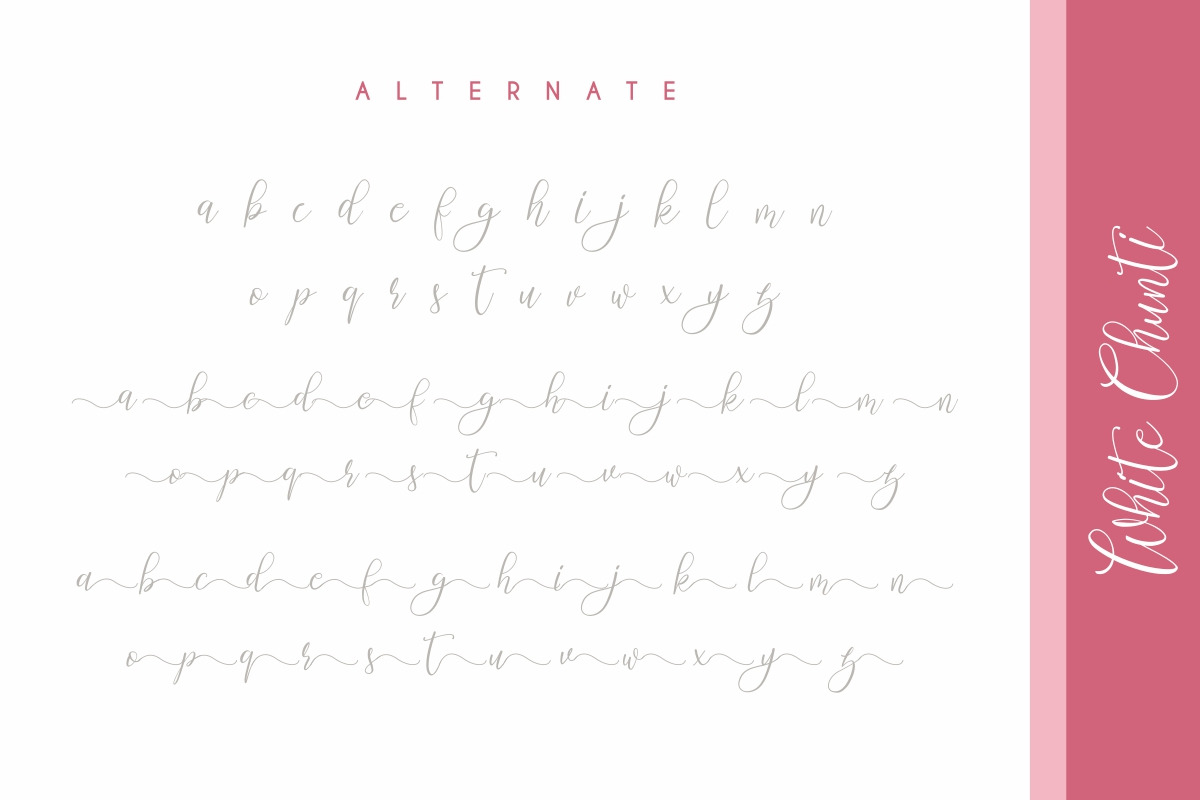 ALTERNATE
a b c d e f g h i j k l m n
o p q r s t u v w x y z
a b c d e f g h i j k l m n
o p q r s t u v w x y z
a b c d e f g h i j k l m n
o p q r s t u v w x y z
White Chunti